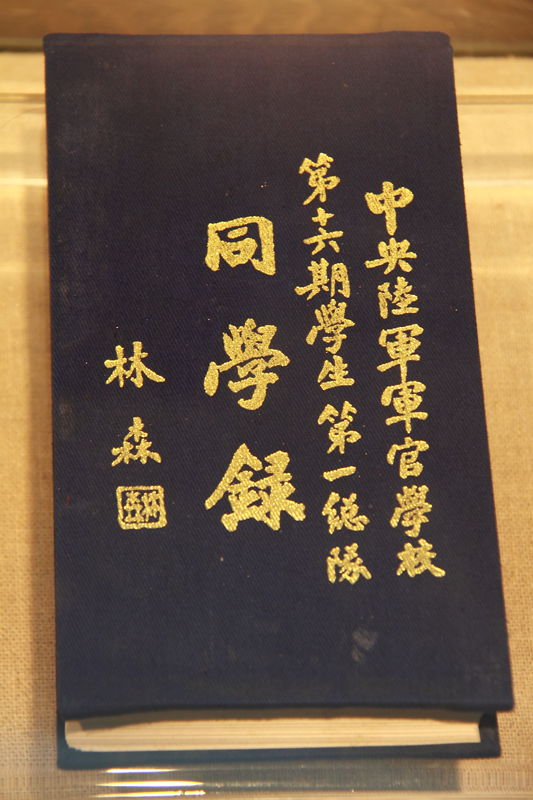 中央陸軍軍官學校
第十六期學生第一總隊
同學録
林森